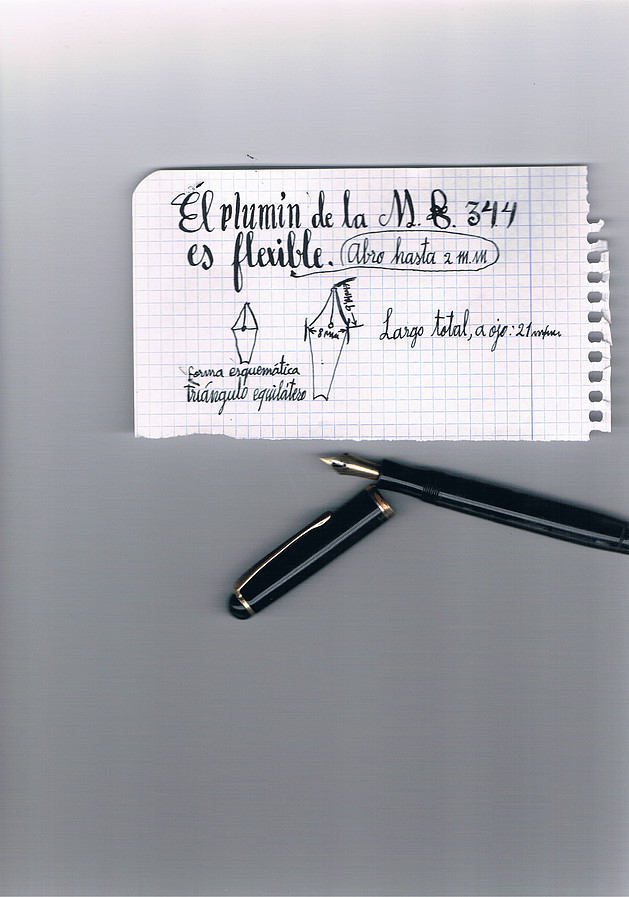 El plumín de la M. B. 344
es flexible. Abro hasta 2 m.m
8 mm
Largo total, a ojo: 21 m.m.
forma esquemática
triángulo equilátero